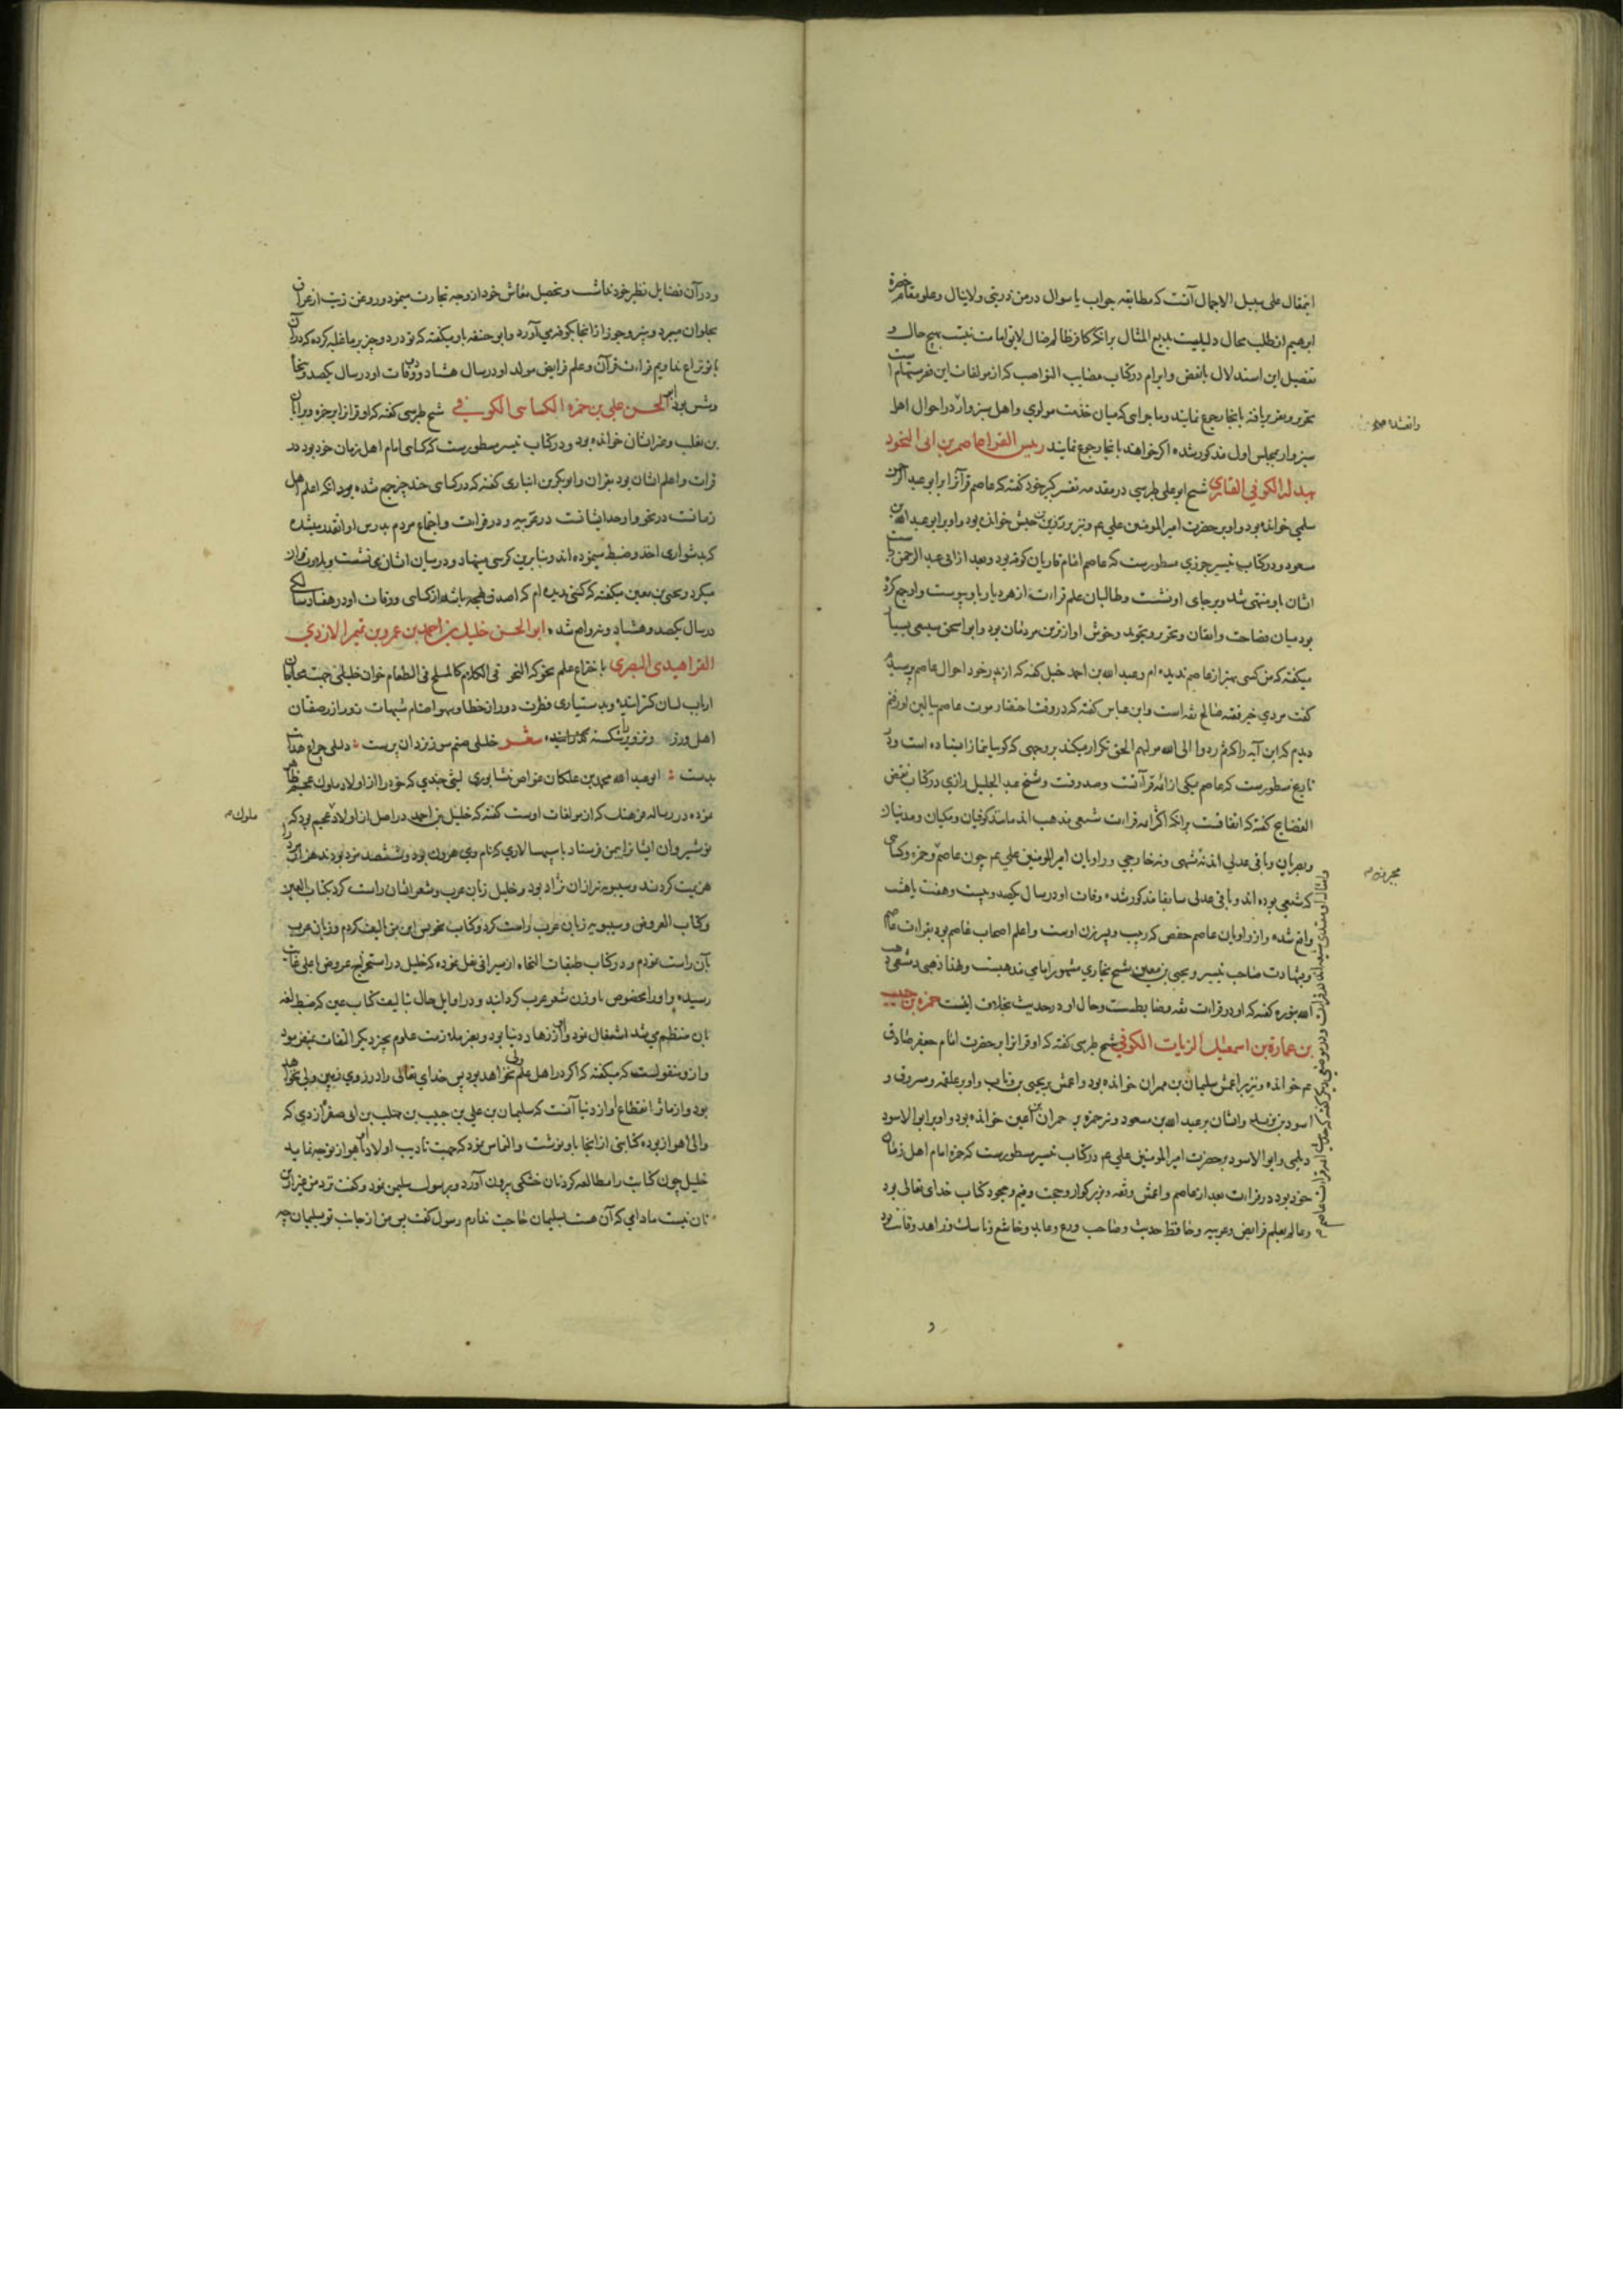 ابراهیم از طلب محال دلیلیست بدیع المثال برانکه کافر ظالم ضال لایق امامت نیست بهیچ حال و
تفصیل این استدلال با نقض و ابرام در کتاب مصایب النواصب که از مولفات این فقیر مستهام است
تحریر و تقریر یافته بانجا رجوع نمایند و ماجرایی که میان خدمت مولوی و اهل سبزوار در احوال اهل
سبزوار مجلس اول مذکور شده اکر خواهند بانجا رجوع نمایند رییس القرا عاصم بن ابی النجود
بهدله الکوفی القاری شیخ ابو علی طبرسی در مقدمه تفسیر کبیر خود کفته که عاصم قرآنرا بر ابو عبد الرحمن
سلمی خوانده بود و او بر حضرت امیر المومنین علی عم و نیز بر زر بن حبیش خوانده بود و او بر ابو عبد الله بن
مسعود و در کتاب تیسیر جزری مسطورست که عاصم امام قاریان کوفه بود و بعد از ابی عبد الرحمن
ایشان باو منتهی شد و بر جای او نشست و طالبان علم قراءت از هر دیار باو پیوست و او جمع کرده
بود میان فصاحت و اتقان و تحریر و تجوید و خوش اوازترین مردمان بود و ابو اسحق سبیعی بسیار
میکفته که من کسی بهتر از عاصم ندیده ام و عبد الله بن احمد حنبل کفته که از پدر خود احوال عاصم پرسیدم
کفت مردی خیر فقه صالح ثقه است و ابن عیاش کفته که در وقت احتضار موت عاصم ببالین او رفتم
دیدم که این آیه را که ثم ردوا الی الله مولیهم الحق تکرار میکند بر وجهی که کویا بنماز ایستاده است و در
تاریخ مسطورست که عاصم یکی از ائمه قرآنست و صدوقست و شیخ عبد الجلیل رازی در کتاب نقض
الفضایح کفته که اتفاقست برانکه اکثر ائمه قراءت شیعی مذهب اند مانند کوفیان و مکیان و مدنیان
و بصریان و باقی عدلی اند نه مشبهی و نه خارجی و راویان امیر المومنین علی عم چون عاصم و حمزه و کسایی
که شیعی بوده اند و باقی عدلی سابقا مذکور شد وفات او در سال یکصد و بیست و هفت یا هشت
واقع شده و از راویان عاصم حفص که ربیب و پسر زن اوست و اعلم اصحاب عاصم بود بقراءت عاصم
و بشهادت صاحب تیسیر و یحیی بن معین شیخ بخاری مشهور امامی مذهبست و لهذا ذهبی دمشقی
کفته که او در قراءت ثقه و ضابطست و حال او در حدیث بخلاف اینست حمزة بن حبیب
بن عمارة بن اسمعیل الزیات الکوفی شیخ طبرسی کفته که او قرآنرا بر حضرت امام جعفر صادق
عم خوانده و نیز بر اعمش سلیمان بن مهران خوانده بود و اعمش بر یحیی بن وثاب و او بر علقمه و مسروق و
اسود بن یزید و ایشان بر عبد الله بن مسعود و نیز حمزه بر حمران بن اعین خوانده بود و او بر ابو الاسود
دیلمی و ابو الاسود بر حضرت امیر المومنین علی عم در کتاب تیسیر مسطورست که حمزه امام اهل زمان
خود بود در قراءت بعد از عاصم و اعمش و ثقه و بزرکوار و حجت و قیم و مجود کتاب خدای تعالی بود
و عالم بعلم فرایض و عربیه و حافظ حدیث و صاحب ورع و عابد و خاشع و ناسک و زاهد و قانت بود
و در آن فضایل نظیر خود نداشت و تحصیل معاش خود از وجه تجارت مینمود و روغن زیت از عراق
بحلوان میبرد و پنیر و جوز از انجا بکوفه می آورد و ابو حنیفه باو میکفته که تو در دو چیز بر ما غلبه کرده که در آن
با تو نزاع نداریم قراءت قرآن و علم فرایض مولد او در سال هشتاد و وفات او در سال یکصد و پنجاه
و شش بود ابو الحسن علی بن حمزه الکسایی الکوفی شیخ طبرسی کفته که او قرآنرا بر حمزه و بر ابان
بن تغلب و غیر ایشان خوانده بود و در کتاب تیسیر مسطورست که کسایی امام اهل زمان خود بود در
قراءت و اعلم ایشان بود بقرآن و ابو بکر بن انباری کفته که در کسایی چند چیز جمع شده بود انکه اعلم اهل
زمانست در نحو و اوحد ایشانست در غریبه و در قراءت و اجتماع مردم بدرس او انقدر میشده
که بدشواری اخذ و ضبط مینموده اند و بنابرین کرسی مینهاد و در میان ایشان می نشست و تلاوت قرآن
میکرد و یحیی بن معین میکفته که کسی ندیده ام که اصدق لهجه باشد از کسایی و وفات او در هفتاد سالکی
در سال یکصد و هشتاد و نه واقع شد ابو الحسن خلیل بن احمد بن عمرو بن تمیم الازدی
الفراهیدی البصری باختراع علم نحو که النحو فی الکلام کالملح فی الطعام خوان خلیلی جهت عامیان
ارباب لسان کسترانیده و بدستیاری فطرت دور از خطا و سهو اصنام شبهات نور از رصفتان
اهل ورز و تزویر شکسته کذرانیده شعر خلیلی صنم سوز یزدان پرست دلیلی چراغ هدایت
بدست ابو عبد الله محمد بن علکان غواص نشابوری لیثی جندی که خود را از اولاد ملوک عجم ظاهر
نموده در رساله فرهنک که از مولفات اوست کفته که خلیل بن احمد در اصل از اولاد عجم بود که
ملوک
نوشیروان ایشانرا بیمن فرستاد با سپهسالاری که نام وی هروز بود و ششصد مرد بودند هزار مرد را
هزیمت کردند و سیبویه نیز از ان نژاد بود و خلیل زبان عرب و شعر ایشان راست کرد بکتاب العین
و کتاب العروض و سیبویه زبان عرب راست کرد و کتاب نحو پس این من تالیف کردم و زبان عرب
بآن راست نمودم و در کتاب طبقات النحاة از سیرافی نقل نموده که خلیل در استخراج عروض باعلی غایت
رسیده و او را مخصوص باوزن شعر عرب کردانید و در اوایل حال بتالیف کتاب عین که ضبط لغه
بان منتظم می شد اشتغال نمود و او از زهاد دنیا بود و بغیر ملازمت علوم بچیز دیکر التفات نمیفرمود
و ازو منقولست که میکفته که اکر در اهل علم ولی نخواهد بود پس خدای تعالی را در روی زمین ولی نخواهد
بود و از ماثر انقطاع او از دنیا آنست که سلیمان بن علی بن حبیب بن مهلب بن ابی صفره ازدی که
والی اهواز بوده کتابتی از انجا باو نوشت و التماس نمود که جهت تادیب اولاد او باهواز توجه نماید
خلیل چون کتابت را مطالعه کرد نان خشکی بیرون آورد و برسول سلیمن نمود و کفت نزد من غیر ازین
نان نیست مادامی که آن هست بسلیمان حاجت ندارم رسول کفت پس من از جانب تو بسلیمان چه